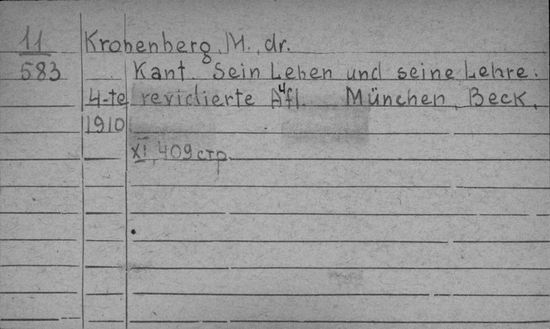 11
583
Kronenberg, M., dr.
Kant. Sein Leben und seine Lehre.
4-te revidierte Aufl. München, Beck,
1910
XI, 409 стр.